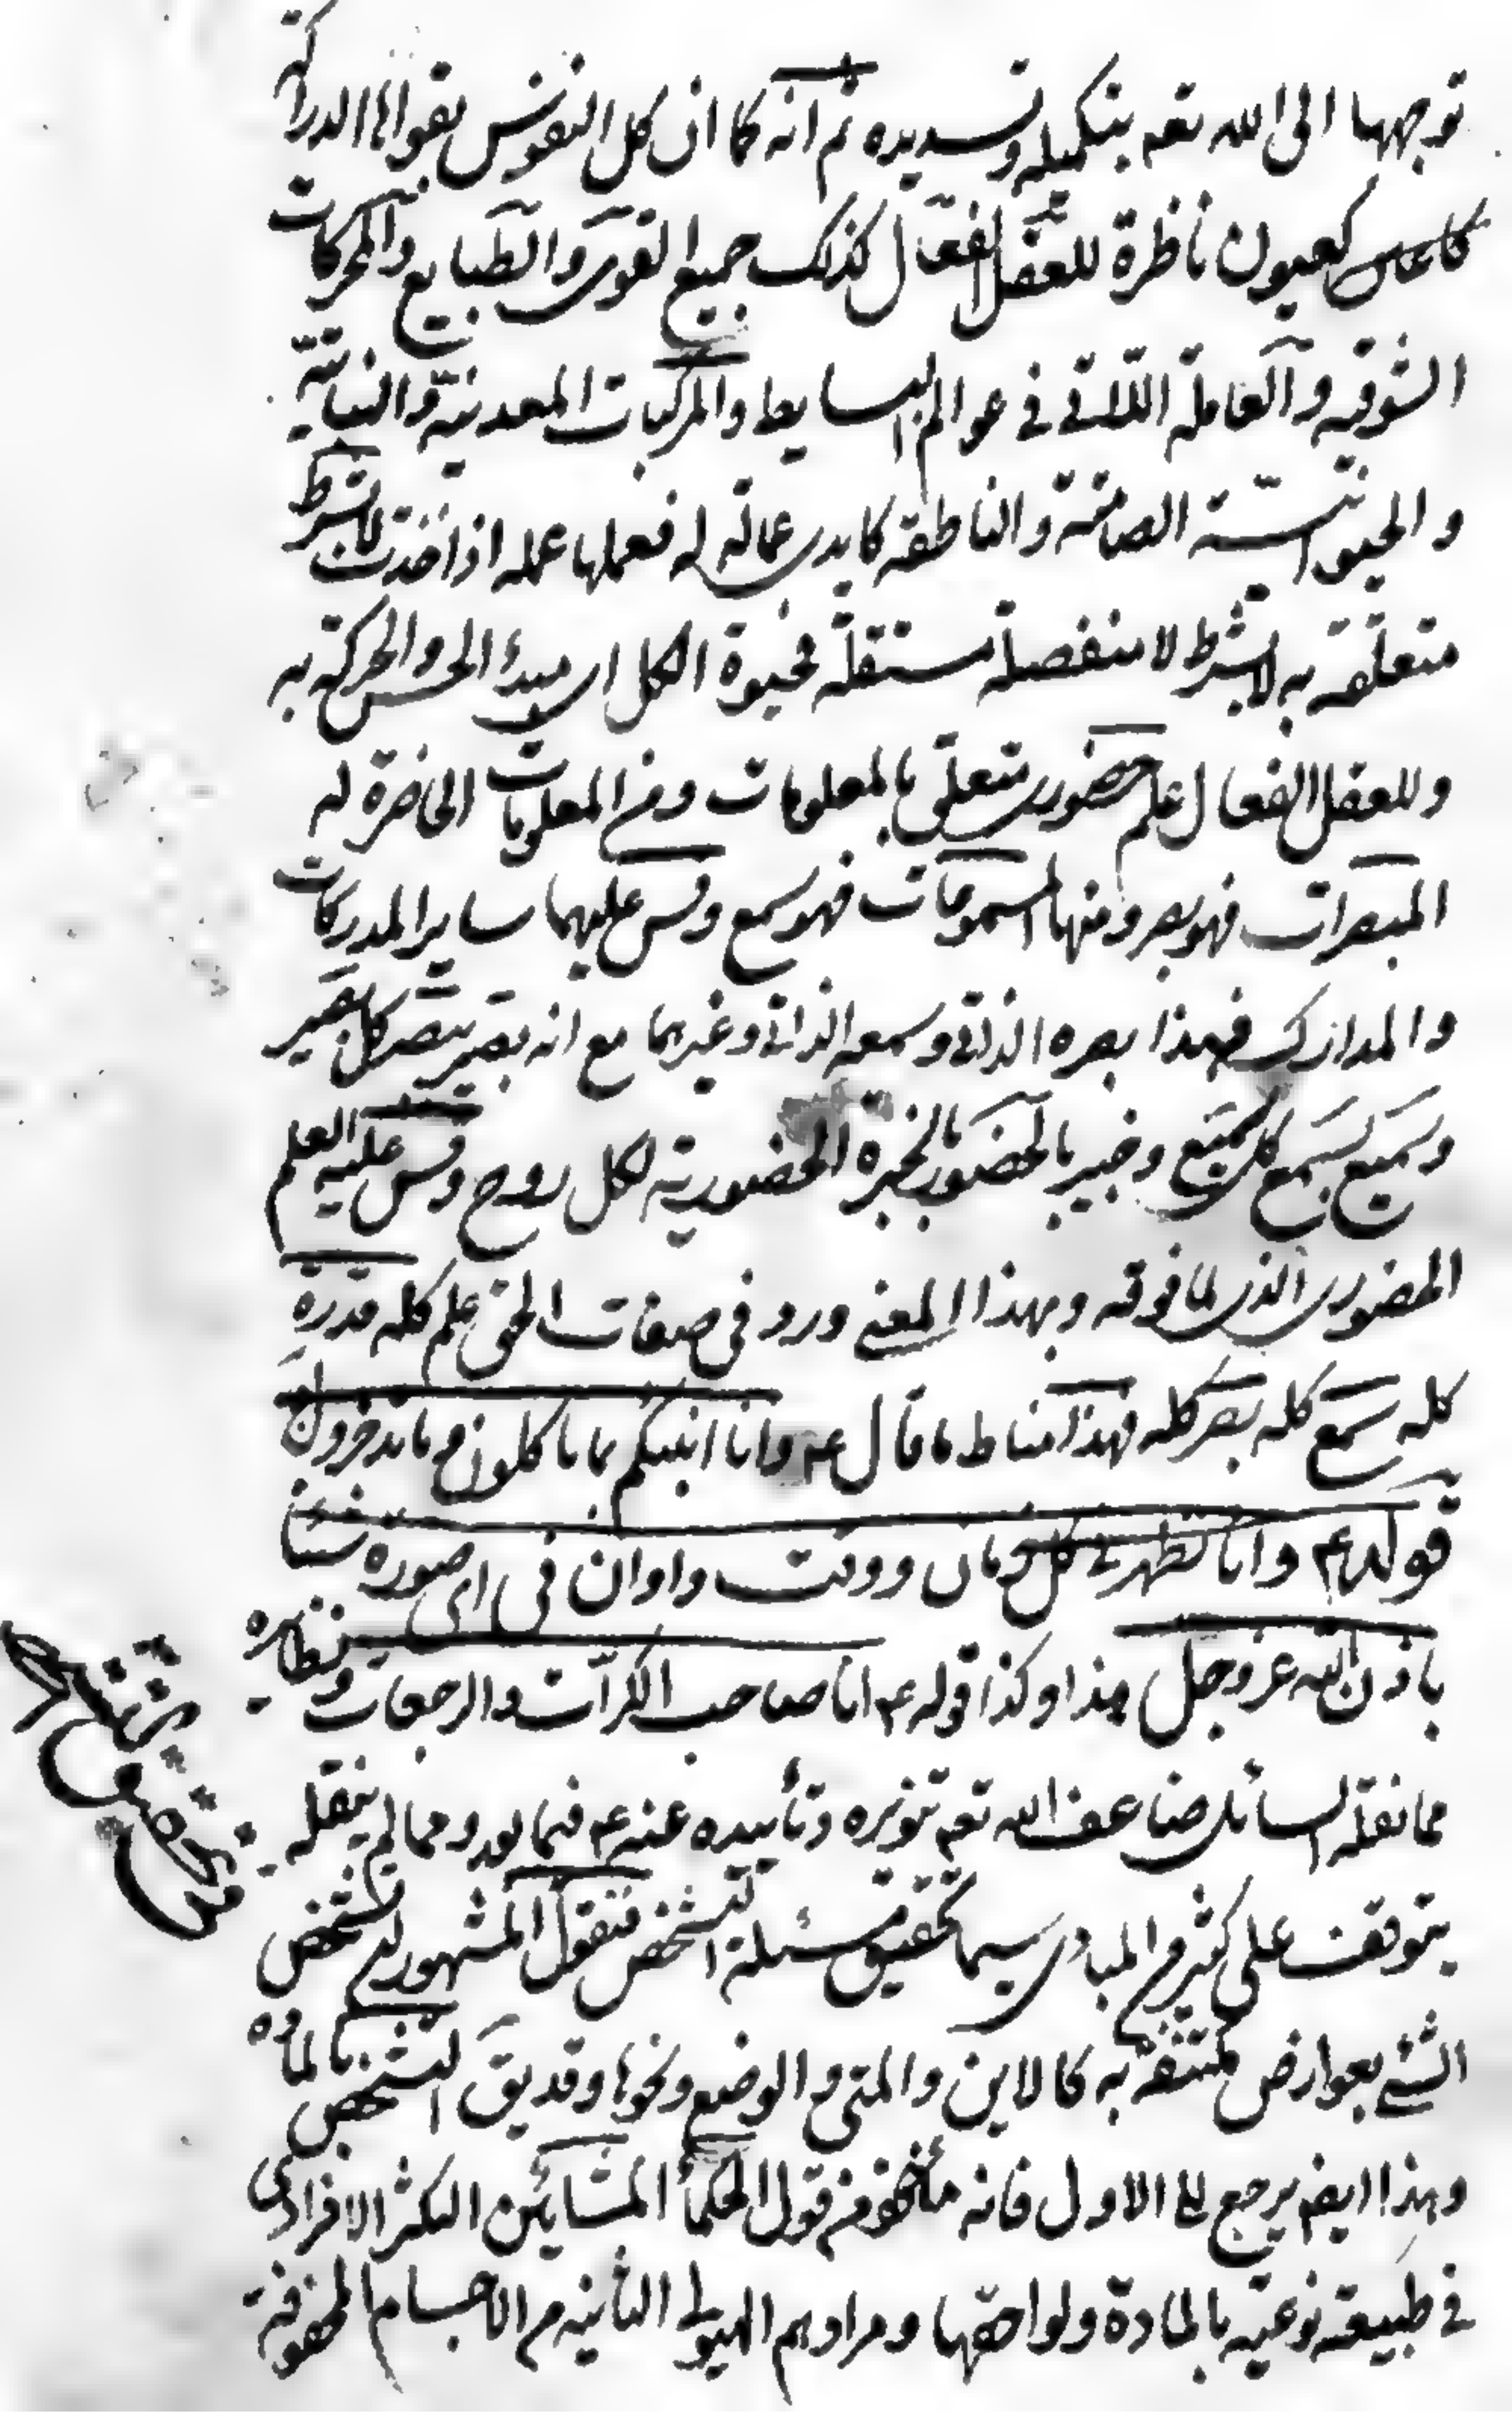 توجهها الی الله تعه بتکمیله وتسدیده ثم انه کما ان کل النفوس بقواها الدراکة
کعیون ناظرة للعقل الفعال کذلک جمیع القوی والطبایع والمحرکات
الشوقیه والعاملة اللاتی فی عوالم البسایط والمرکبات المعدنیة والنباتیة
والحیوانیة الصامتة والناطقه کایدی عمالة له فعملها عمله اذا اخذت لابشرط
متعلقه به لابشرط لا منفصلة مستقلة فحیوة الکل ای مبدء الحس والحرکة به
وللعقل الفعال علم حضوری متعلق بالمعلومات ومن المعلومات الحاضرة له
المبصرات فهو بصر ومنها المسموعات فهو سمع وقس علیهما سایر المدرکات
والمدارک فهذا بصره الذاتی وسمعه الذاتی وغیرهما مع انه بصیر ببصر کل بصیر
وسمیع بسمع کل سمیع وخبیر بالحضور بالخبرة الحضوریة لکل روح وقس علیه العلم
الحضوری الذی لما فوقه وبهذا المعنی ورد فی صفات الحق علم کله قدرة
کله سمع کله بصر کله فهذا مناط ما قال عم وانا انبئکم بما تاکلون وما تدخرون
قوله عم وانا نظهر فی کل زمان ووقت واوان فی ای صورة شئنا
باذن الله عز وجل هذا وکذا قوله عم انا صاحب الکرات والرجعات ونظایره
مما نقله السائل ضاعف الله تعه تنویره وتأییده عنه عم فیما بعد ومما لم ینقله
یتوقف علی کثیر من المبادی سیما تحقیق مسئلة التشخص فنقول المشهور ان تشخص
الشئ بعوارض مکتنفة به کالاین والمتی والوضع ونحوها وقد یق التشخص بالمادة
وهذا ایضا یرجع الی الاول فانه مأخوذ من قول الحکمأ المشائین التکثر الافرادی
فی طبیعة نوعیه بالمادة ولواحقها ومرادهم الهیولی الثانیه من الاجسام المحفوفة
فی تحقیق التشخص